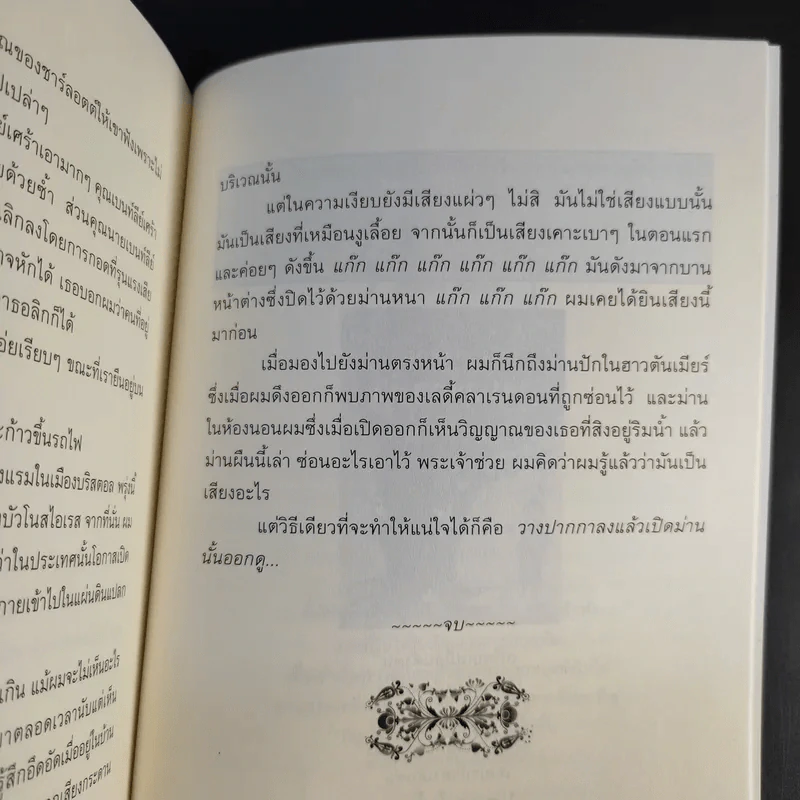 ณของชาร์ลอตต์ให้เขาฟังเพราะไม่
ปเปล่าๆ
ย์เศร้าเอามากๆ คุณเบนทัสีย์เศร้า
ยด้วยซ้ำ ส่วนคุณนายเบนทัสีย์
เลิกลงโดยการกอดที่รุนแรงเสีย
าจหักได้ เธอบอกผมว่าคนที่อยู่
าธอลิกก็ได้
อ่ยเรียบๆ ขณะที่เรายืนอยู่บน
ะก้าวขึ้นรถไฟ
งแรมในเมืองบริสตอล พรุ่งนี้
งบัวโนสไอเรส จากที่นั่น ผม
ว่าในประเทศนั้นโอกาสเปิด
ายเข้าไปในแผ่นดินแปลก
เกิน แม้ผมจะไม่เห็นอะไร
าตลอดเวลานับแต่เห็น
รู้สึกอึดอัดเมื่ออยู่ในบ้าน
เสียงกระดาน
บริเวณนั้น
แต่ในความเงียบยังมีเสียงแผ่วๆ ไม่สิ มันไม่ใช่เสียงแบบนั้น
มันเป็นเสียงที่เหมือนงูเลื้อย จากนั้นก็เป็นเสียงเคาะเบาๆ ในตอนแรก
และค่อยๆ ดังขึ้น แก๊ก แก๊ก แก๊ก แก๊ก แก๊ก แก๊ก มันดังมาจากบาน
หน้าต่างซึ่งปิดไว้ด้วยม่านหนา แก๊ก แก๊ก แก๊ก ผมเคยได้ยินเสียงนี้
มาก่อน
เมื่อมองไปยังม่านตรงหน้า ผมก็นึกถึงม่านปักในฮาวตันเมียร์
ซึ่งเมื่อผมดึงออกก็พบภาพของเลดี้คลาเรนดอนที่ถูกซ่อนไว้ และม่าน
ในห้องนอนผมซึ่งเมื่อเปิดออกก็เห็นวิญญาณของเธอที่สิงอยู่ริมน้ำ แล้ว
ม่านผืนนี้เล่า ซ่อนอะไรเอาไว้ พระเจ้าช่วย ผมคิดว่าผมรู้แล้วว่ามันเป็น
เสียงอะไร
แต่วิธีเดียวที่จะทำให้แน่ใจได้ก็คือ วางปากกาลงแล้วเปิดม่าน
นั้นออกดู...
~~~~~จบ~~~~~